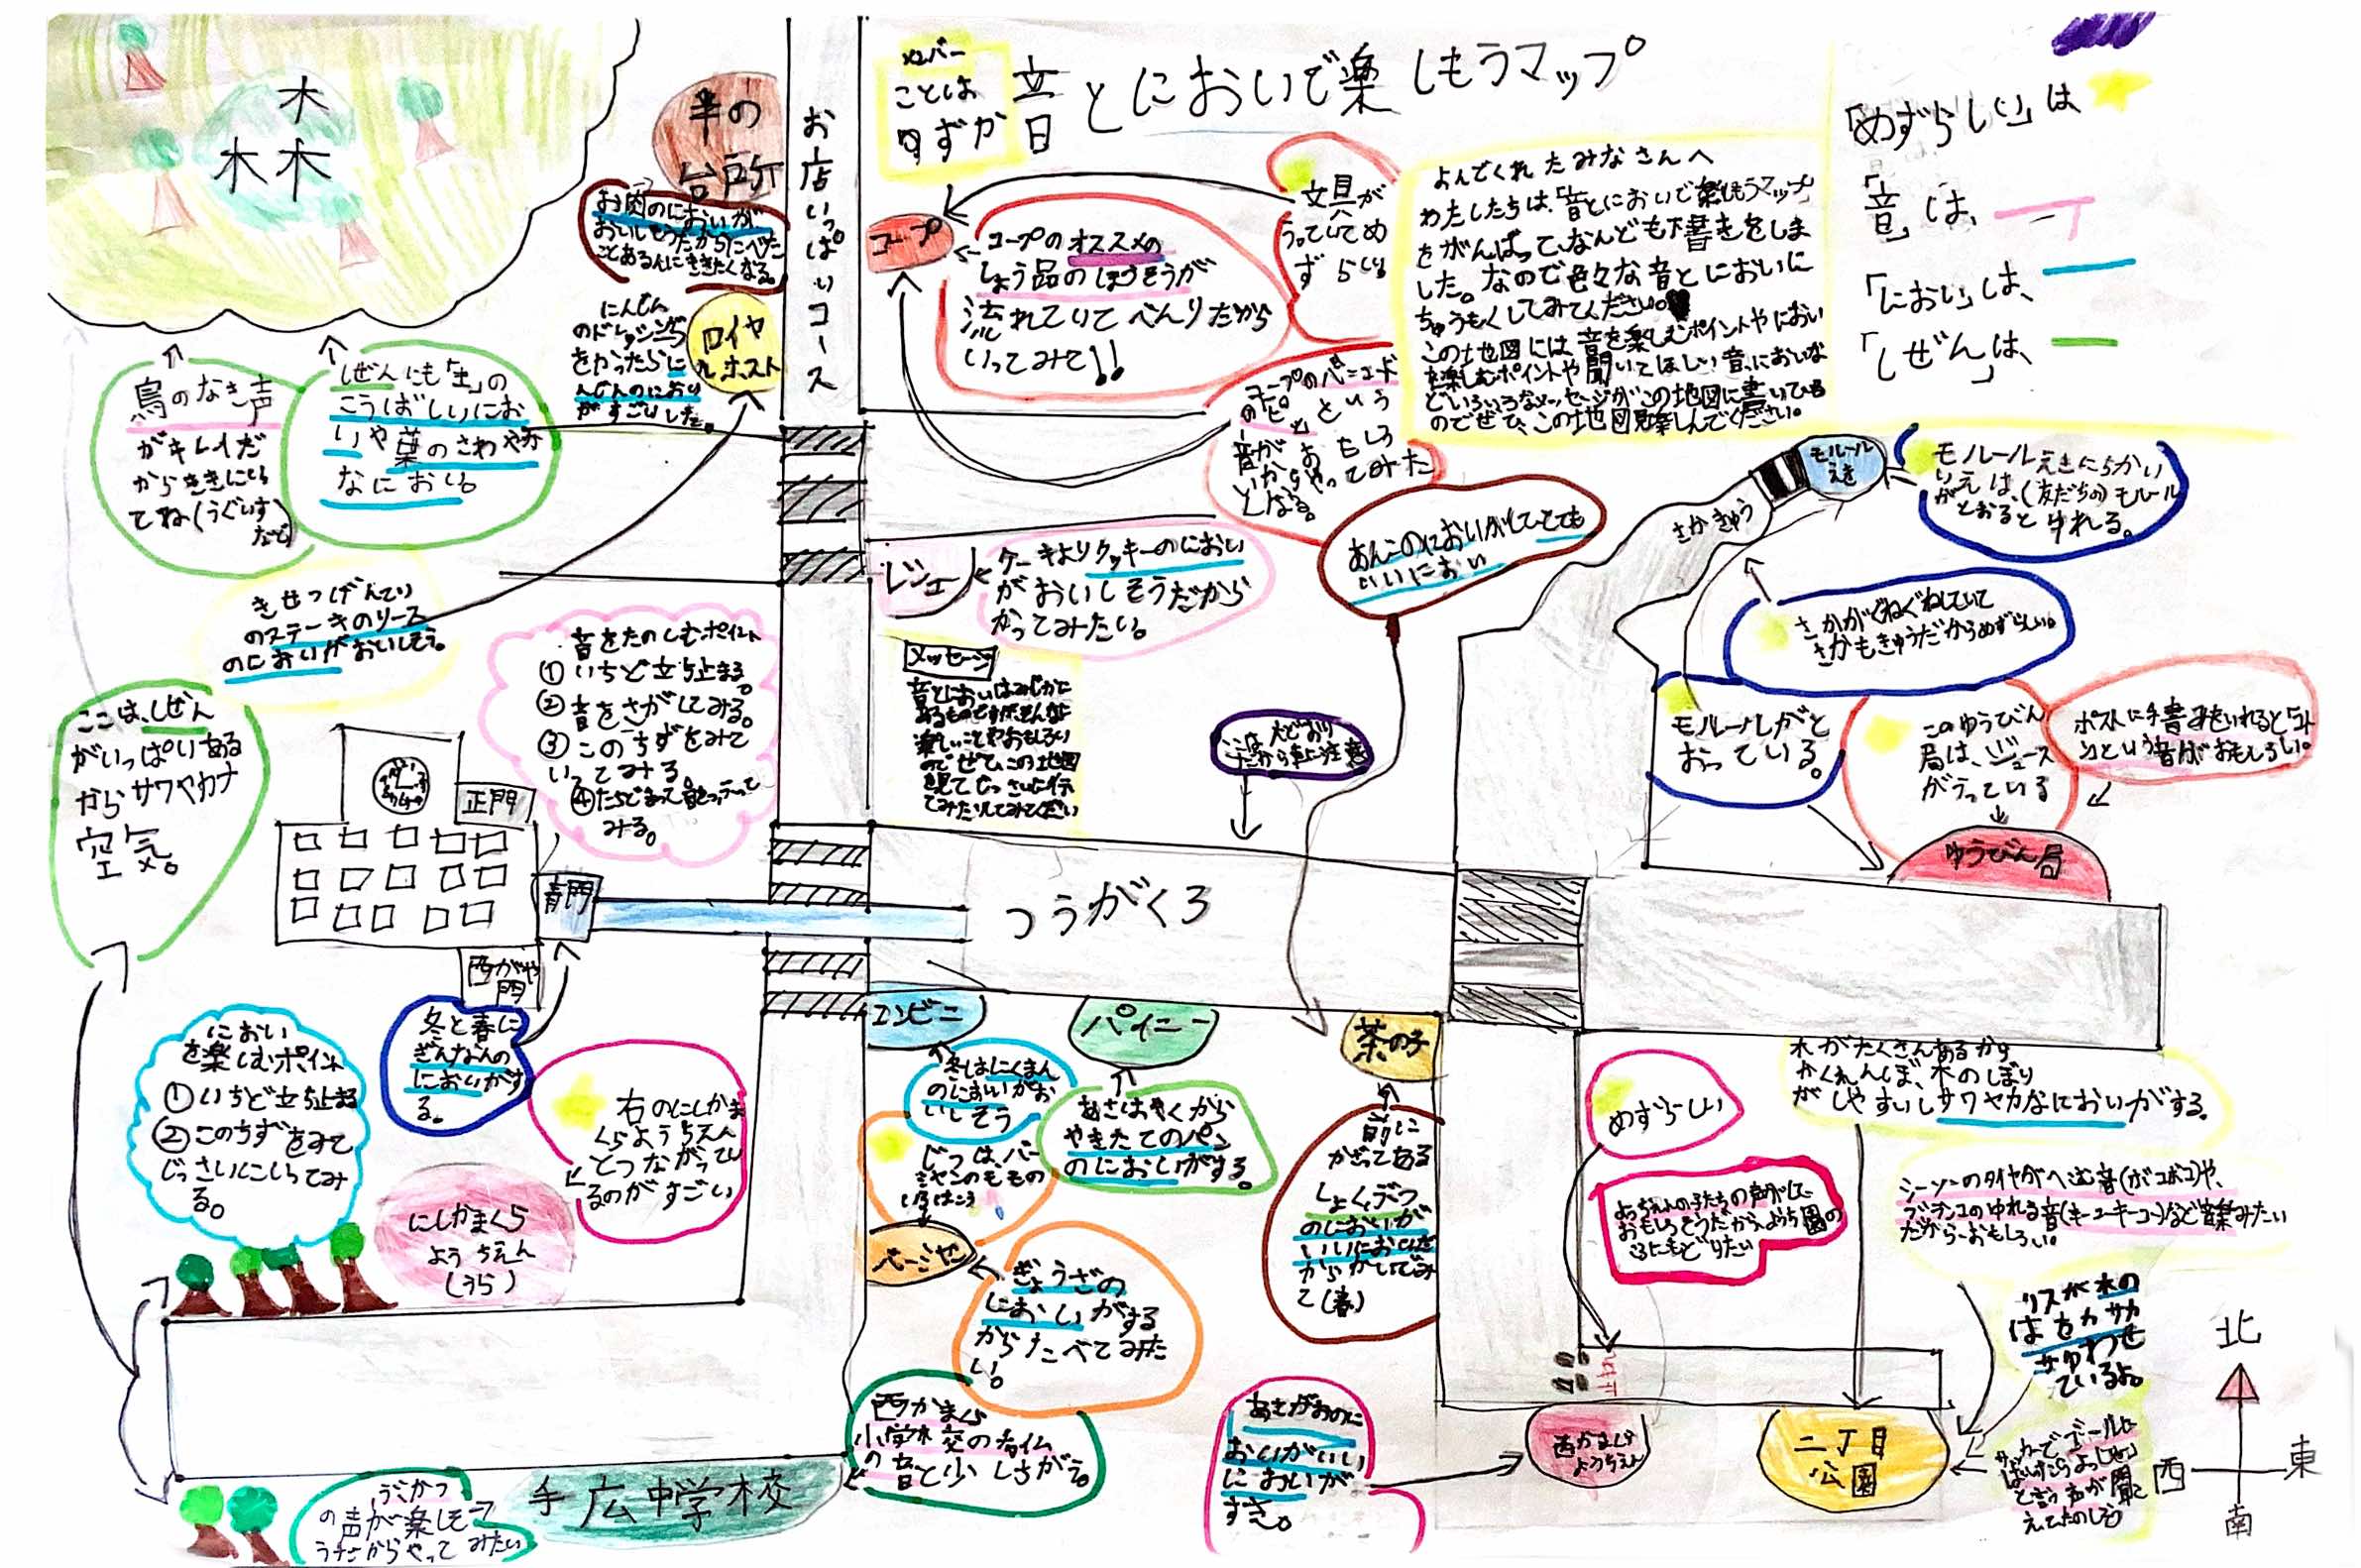 メンバー
ことは
すずか
音とにおいで楽しもうマップ
「めずらしい」は
「音」は、
「におい」は、
「しぜん」は、
よんでくれたみなさんへ
わたしたちは、「音とにおいで楽しもうマップ」
をがんばって、なんども下書きをしま
した。なので色々な音とにおいに
ちゅうもくしてみてください。
この地図には、音を楽しむポイントやにおい
を楽しむポイントや聞いてほしい音、においな
どいろいろなメッセージがこの地図に書いている
のでぜひ、この地図見て楽しんでください。
森
お店いっぱいコース
牛の
台所
お肉のにおいが
おいしそうだから
ことある人にききたくなる。
ロイヤ
ルホスト
にんじん
のドレッシング
をかったらに
んじんのにおい
がすごいした。
コープ
コープのオススメの
しょう品のほうそうが
流れていてべんりだから
いってみて!!
文具が
うっていてめ
ずらしい
コープのバーコード
のピッという
音がおもしろ
いからやってみた
くなる。
鳥のなき声
がキレイだ
からききにい
てね(うぐいす
など)
しぜんにも「土」の
こうばしいにお
いや葉のさわやか
なにおい。
きせつげんてい
のステーキのソース
のにおいがおいしそう。
レジュー
ケーキよりクッキーのにおい
がおいしそうだから
かってみたい。
あんこのにおいがしてとても
いいにおい
モノレール
えき
さかきゅう
モノレールえきにちかい
いえは、(友だちの)モノレール
がとおるとゆれる。
さかがぐねぐねしていて
さかもきゅうだからめずらしい。
モノレールがと
おっている。
このゆうびん
局は、ジュース
がうっている
ポストに手書みをいれると「コト
ン」という音がおもしろい。
ゆうびん局
音をたのしむポイント
①いちど立ち止まる。
②音をさがしてみる。
③このちずをみて
いってみる。
みる。
メッセージ
音とにおいはみぢかに
あるものですがそんな
楽しいことやおもしろい
のでぜひこの地図
を見てじっさいに行っ
てみたりしてみてください
大どおり
だから車に注意
ここは、しぜん
がいっぱいある
からサワヤカナ
空気。
正門
青門
西がや
門
つうがくろ
におい
を楽しむポイント
①いちど立ち止まる
②このちずをみて
じっさいにいってみ
る。
冬と春に
ぎんなんの
においがす
る。
右のにしかま
くらようちえん
とつながってい
るのがすごい
にしかまくら
ようちえん
(うら)
コンビニ
冬はにくまん
のにおいがお
いしそう
パイニー
あさはやくから
やきたてのパン
のにおいがする。
茶の子
前に
かざってある
しょくぶつ
のにおいが
いいにおいだ
からかいでみ
て(春)
じつは、バー
ミヤンのもものいろはこう
バーミヤン
ぎょうざの
においがする
からたべてみた
い。
西かまくら
小学校のチャイム
の音と少しちがう。
手広中学校
ぶかつ
の声が楽しそ
うだからやってみたい
めずらしい
ようちえんの子たちの声がして
おもしろそうだから、ようち園の
ころにもどりたい
木がたくさんあるから
かくれんぼ、木のぼり
がしやすいしサワヤカなにおいがする。
シーソーのタイヤがへこむ音(ボコボコ)や、
ブランコのゆれる音(キューキーコー)など音楽みたい
だからーおもしろい。
リスが木の
はをカサカ
サゆわせ
ているよ。
サッカーでゴールに
はいったらよっしゃあ
と言う声が聞こ
えてたのしそう
あさがおのに
おいがいい
においが
すき。
西かまくら
ようちえん
二丁目
公園
北
西
東
南